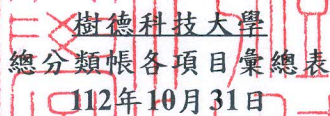 樹德科技大學
總分類帳各項目彙總表
112年10月31日